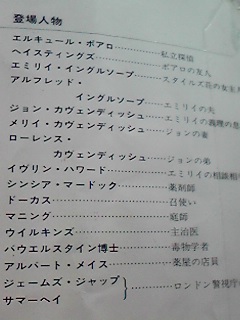 登場人物
エルキュール・ポアロ…………私立探偵
ヘイスティングズ…………ポアロの友人
エミリイ・イングルソープ………スタイルズ荘の女主
アルフレッド・
イングルソープ……エミリイの夫
ジョン・カヴェンディッシュ……エミリイの義理の息
メリイ・カヴェンディッシュ……ジョンの妻
ローレンス・
カヴェンディッシュ……ジョンの弟
イヴリン・ハワード…………エミリイの相談相
シンシア・マードック…………薬剤師
ドーカス…………召使い
マニング…………庭師
ウイルキンズ…………主治医
バウエルスタイン博士…………毒物学者
アルバート・メイス…………薬屋の店員
ジェームズ・ジャップ
サマーヘイ
}……ロンドン警視庁